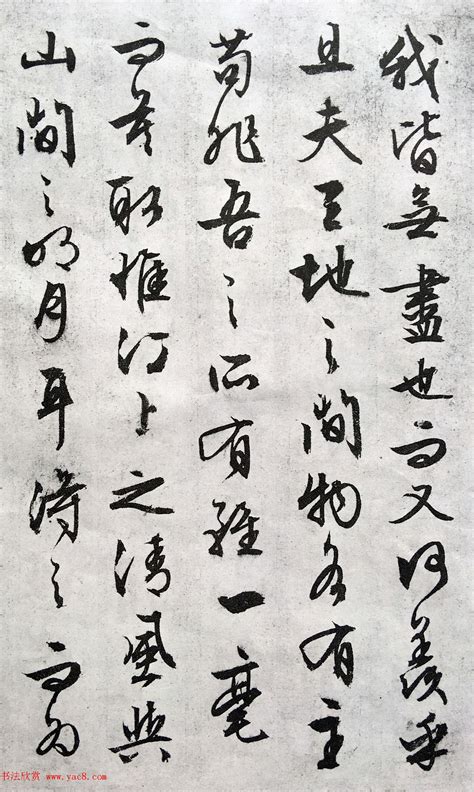 我皆無盡也而又何羨乎
且夫天地之間物各有主
苟非吾之所有雖一毫
而莫取惟江上之清風與
山間之明月耳得之而為
书法欣赏 www.yac8.com